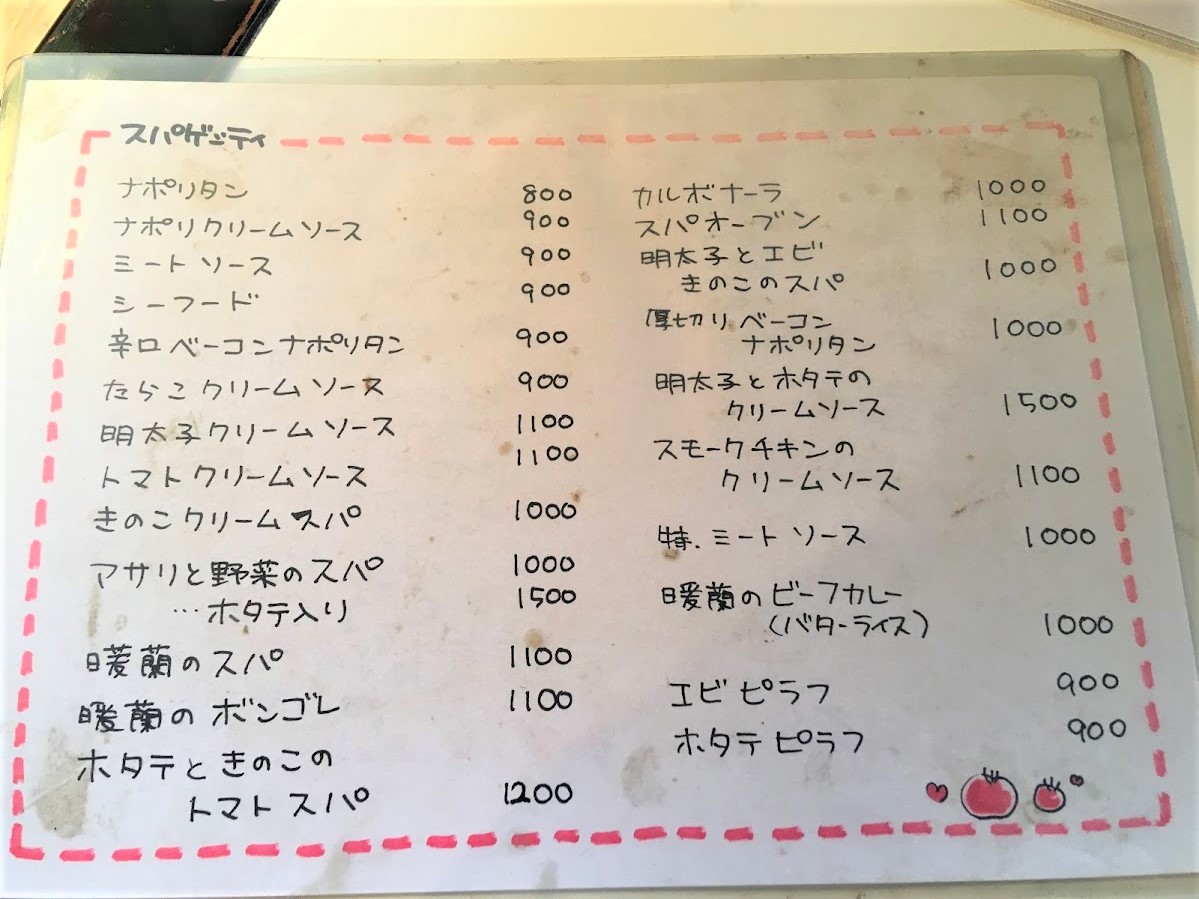 スパゲッティ
ナポリタン 800
ナポリクリームソース 900
ミートソース 900
シーフード 900
辛口ベーコンナポリタン 900
たらこクリームソース 900
明太子クリームソース 1100
トマトクリームソース 1100
きのこクリームスパ 1000
アサリと野菜のスパ 1000
…ホタテ入り 1500
暖蘭のスパ 1100
暖蘭のボンゴレ 1100
ホタテときのこの
トマトスパ 1200
カルボナーラ 1000
スパオーブン 1100
明太子とエビ
きのこのスパ 1000
厚切りベーコン
ナポリタン 1000
明太子とホタテの
クリームソース 1500
スモークチキンの
クリームソース 1100
特.ミートソース 1000
暖蘭のビーフカレー
(バターライス) 1000
エビピラフ 900
ホタテピラフ 900